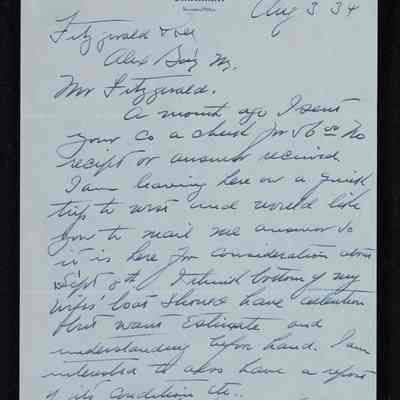 Aug 3 34
Fitzgerald & Lee
Alex Bay Ny.
Mr Fitzgerald.
A month ago I sent
your Co a check for 56 00 No
recipt or answer received
I am leaving here on a quick
trip to west and would like
you to mail me answer so
it is here for consideration about
Sept 8th I think bottom of my
wifes boat should have attention
first want Estimate and
understanding before hand. I am
interested to also have a report
of its condition etc..